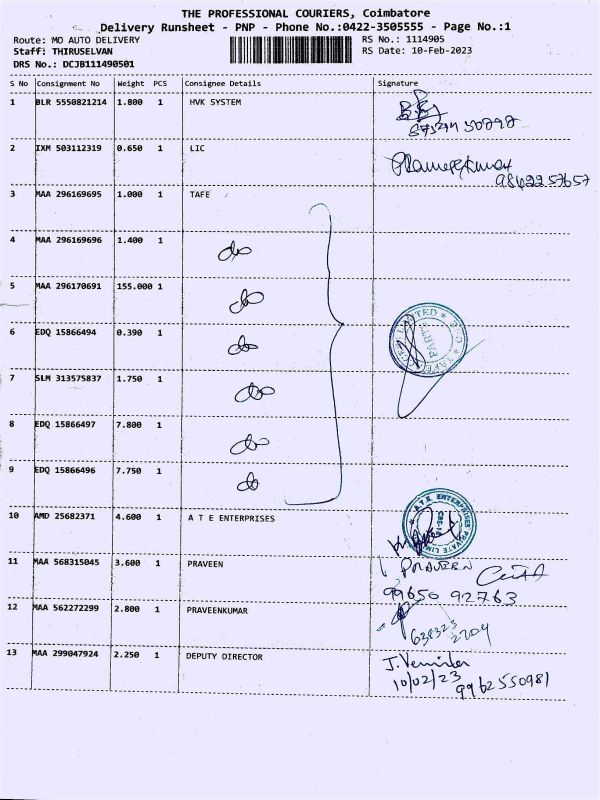 THE PROFESSIONAL COURIERS, Coimbatore
Delivery Runsheet - PNP - Phone No.:0422-3505555 - Page No.:1
Route: MO AUTO DELIVERY RS No.: 1114905
Staff: THIRUSELVAN RS Date: 10-Feb-2023
DRS No.: DCJB111490501
S No Consignment No Weight PCS Consignee Details Signature
1 BLR 5550821214 1.800 1 HVK SYSTEM
2 IXM 503112319 0.650 1 LIC
9842257657
3 MAA 296169695 1.000 1 TAFE
4 MAA 296169696 1.400 1 do
5 MAA 296170691 155.000 1 do
6 EDQ 15866494 0.390 1 do
7 SLM 313575837 1.750 1 do
8 EDQ 15866497 7.800 1 do
9 EDQ 15866496 7.750 1 do
10 AMD 25682371 4.600 1 A T E ENTERPRISES
A T E ENTERPRISES PRIVATE LIMITED
11 MAA 568315045 3.600 1 PRAVEEN PRAVEEN
99650 92763
12 MAA 562272299 2.800 1 PRAVEENKUMAR
13 MAA 299047924 2.250 1 DEPUTY DIRECTOR
10/02/23 9962550981